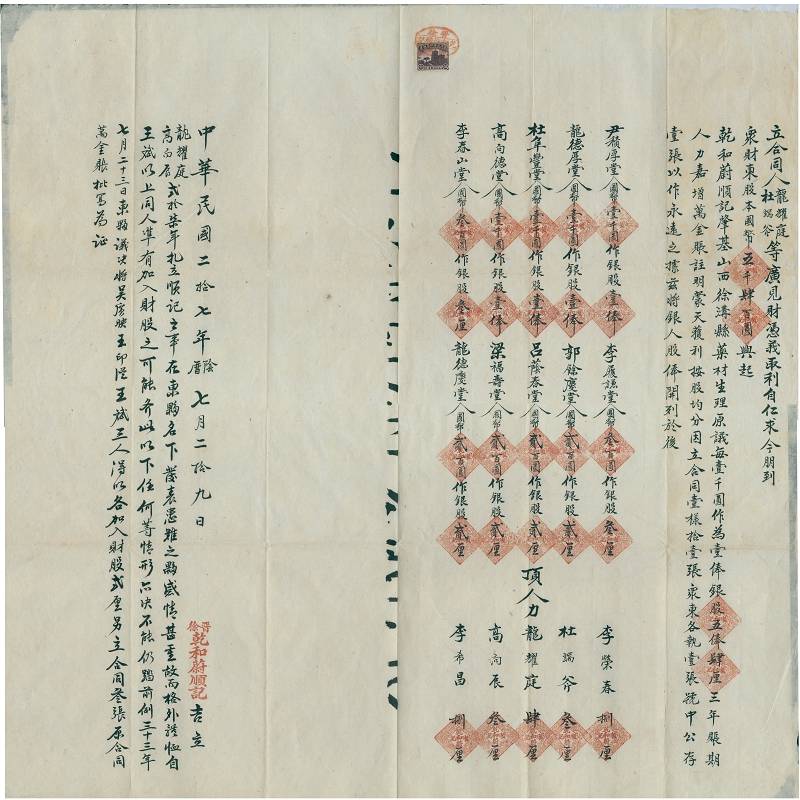 立合同人龍耀庭杜端谷等廣見財憑義取利自仁求今朋到
衆財東股本國幣五千肆百圓興起
乾和蔚順記肇基山西徐溝縣藥材生理原議每壹千圓作為壹俸銀股五俸肆厘三年賬期
人力嘉增萬金賬註明蒙天獲利按股均分因立合同壹樣拾壹張衆東各執壹張號中公存
壹張以作永遠之據茲將銀人股俸開列於後
尹積厚堂入國幣壹千圓作銀股壹俸
李履謙堂入國幣叁百圓作銀股叁厘
龍德厚堂入國幣壹千圓作銀股壹俸
郭餘慶堂入國幣貳百圓作銀股貳厘
杜年豐堂入國幣壹千圓作銀股壹俸
呂蔭春堂入國幣貳百圓作銀股貳厘
高向德堂入國幣壹千圓作銀股壹俸
梁福壽堂入國幣貳百圓作銀股貳厘
李春山堂入國幣叁百圓作銀股叁厘
龍德慶堂入國幣貳百圓作銀股貳厘
頂人力
李榮春 捌厘
杜端斧 叁厘
龍耀庭 肆厘
高向辰 叁厘
李希昌 捌厘
中華民國二十七年陰曆七月二拾九日
晉徐乾和蔚順記 吉立
龍耀庭高向辰貳拾柒年扎立順記之事在東夥名下感情甚重故而格外
王斌以上同人準有加入財股之可能斧此以下任何等情形亦決不能仍踏前例三十三年
七月二十三日東夥議決將吳王印王斌三人得以各加入財股貳厘另立合同叁張原合同
萬金賬批寫為証